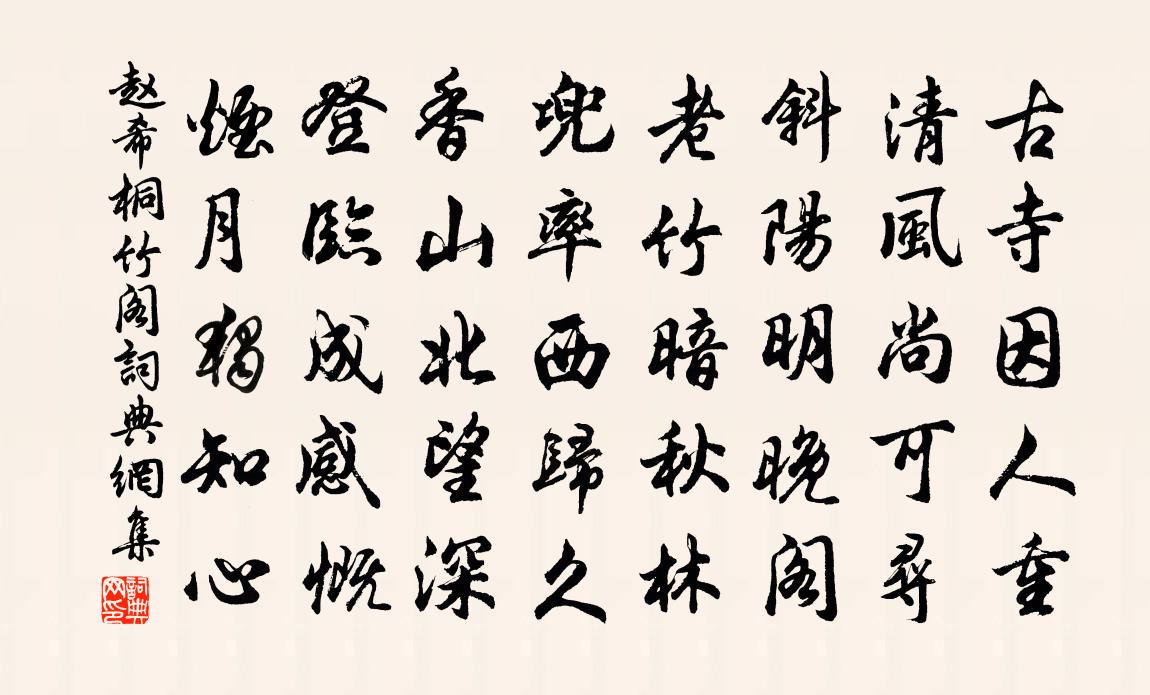 古寺因人重
清風尚可尋
斜陽明晚閣
老竹暗秋林
兜率西歸久
香山北望深
登臨成感慨
煙月獨知心
赵希桐竹阁詞典網集
詞典
网印